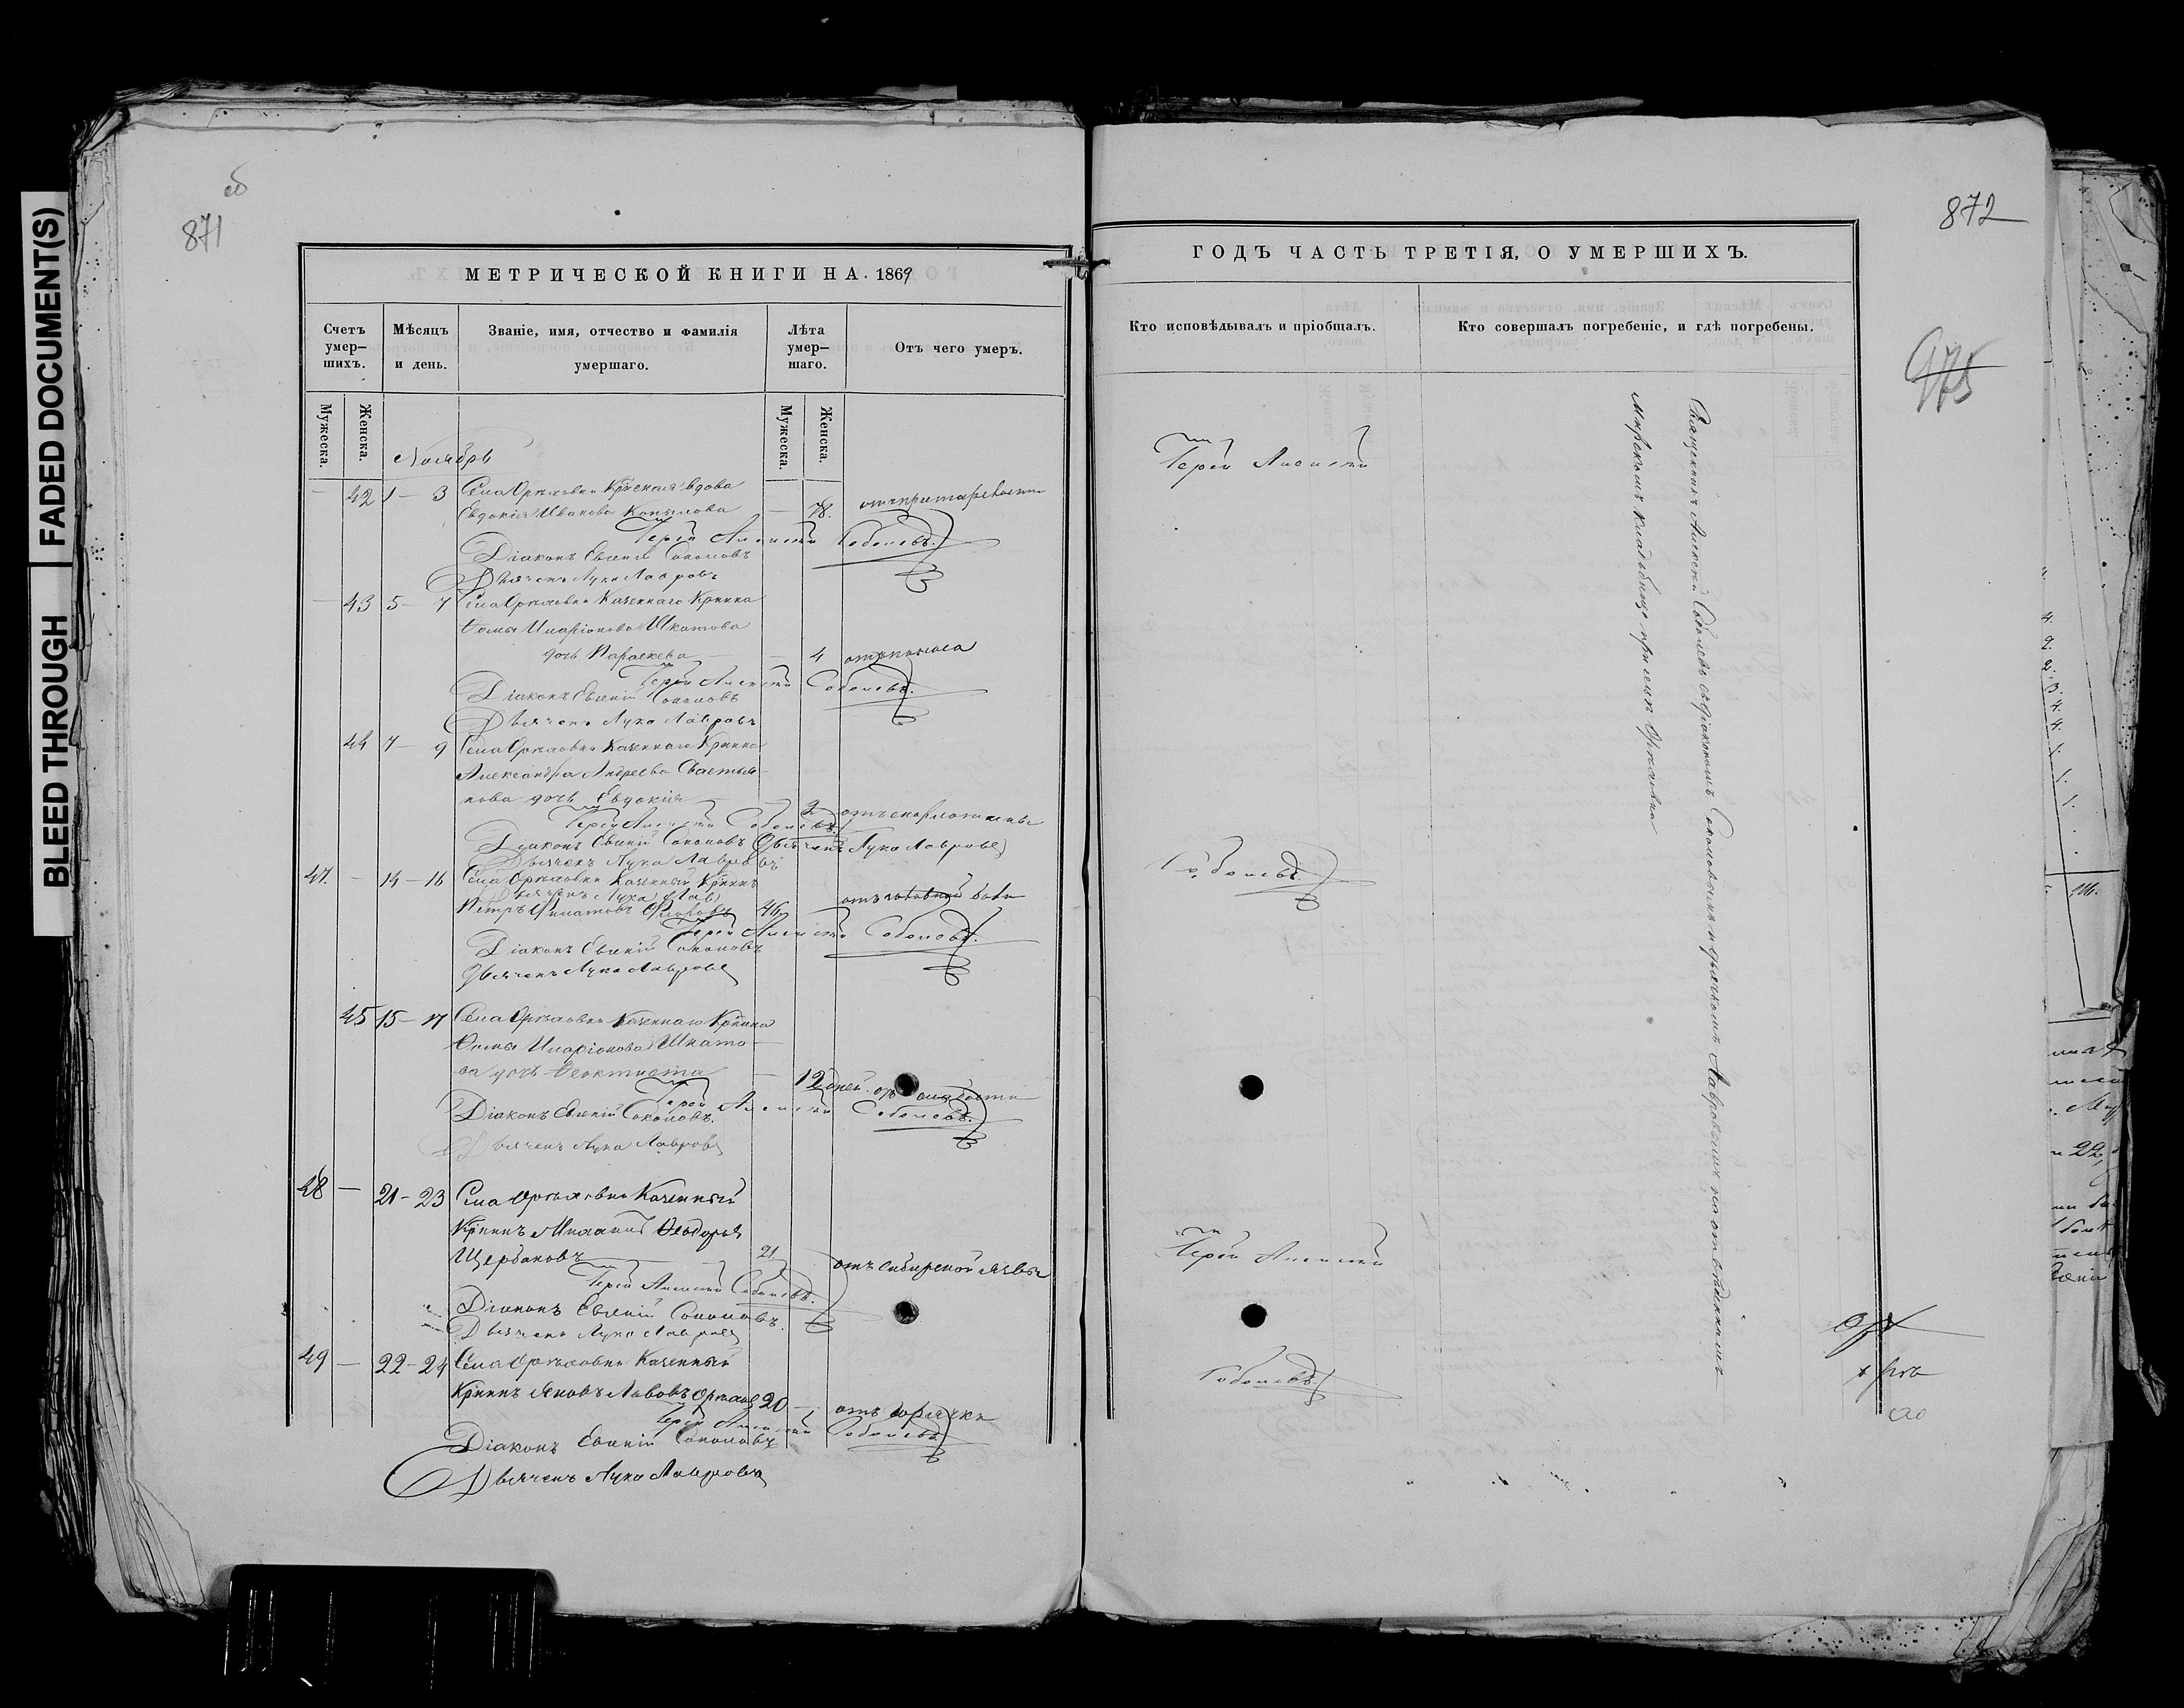 об
871
МЕТРИЧЕСКОЙ КНИГИ НА 1869
Счетъ умер-шихъ.
Мѣсяцъ и день.
Званіе, имя, отчество и фамилія умершаго.
Лѣта умер-шаго.
Отъ чего умеръ.
Мужеска.
Женска.
Мужеска.
Женска.
Ноябрь
— 42 1 — 3 Села Орѣховки вдова
Евдокія Иванова Копылова — 78.
Іерей Алексѣй Соболевъ.
Діаконъ Евгеній Соколовъ
Дьячекъ Лука Лавровъ
— 43 5 — 7 Села Орѣховки Казеннаго Крѣнна
Ѳомы Иларіонова Шкатова
дочь Параскева — — 4 отъ поноса
Іерей Алексѣй Соболевъ.
Діаконъ Евгеній Соколовъ
Дьячекъ Лука Лавровъ
44 7 — 9 Села Орѣховки Казеннаго Крѣнна
Александра Андреева
дочь Евдокія 2 отъ скарлатины
Іерей Алексѣй Соболевъ
Діаконъ Евгеній Соколовъ Дьячекъ Лука Лавровъ
Дьячекъ Лука Лавровъ
47. — 14 — 16 Села Орѣховки Казенный Крѣннъ
Дьячекъ Лука Лав
Петръ Филатовъ 46. отъ головной боли
Іерей Алексѣй Соболевъ.
Діаконъ Евгеній Соколовъ
Дьячекъ Лука Лавровъ
45 15 — 17 Села Орѣховки Казеннаго Крѣнна
Ѳомы Иларіонова Шкато-
ва дочь Ѳеоктиста — 12 дней. отъ слабости
Іерей Алексѣй Соболевъ.
Діаконъ Евгеній Соколовъ.
Дьячекъ Лука Лавровъ
48 — 21 — 23 Села Орѣховки Казенный
Крѣннъ Михаилъ Ѳеодоровъ
Щербаковъ — 21. отъ сибирской язвы
Іерей Алексѣй Соболевъ.
Діаконъ Евгеній Соколовъ.
Дьячекъ Лука Лавровъ
49 — 22 — 24 Села Орѣховки Казенный
Крѣннъ Яковъ Львовъ 20 — отъ горячки
Іерей Алексѣй Соболевъ
Діаконъ Евгеній Соколовъ
Дьячекъ Лука Лавровъ
872
975
ГОДЪ ЧАСТЬ ТРЕТІЯ, О УМЕРШИХЪ.
Кто исповѣдывалъ и пріобщалъ.
Кто совершалъ погребеніе, и гдѣ погребены.
Іерей Алексѣй
Соболевъ.
Іерей Алексѣй
Соболевъ
Священникъ Алексѣй Соболевъ съ діакономъ Соколовымъ и дьячкомъ Лавровымъ на отведенномъ
мірскомъ кладбищѣ при селѣ Орѣховки
BLEED THROUGH
FADED DOCUMENT(S)